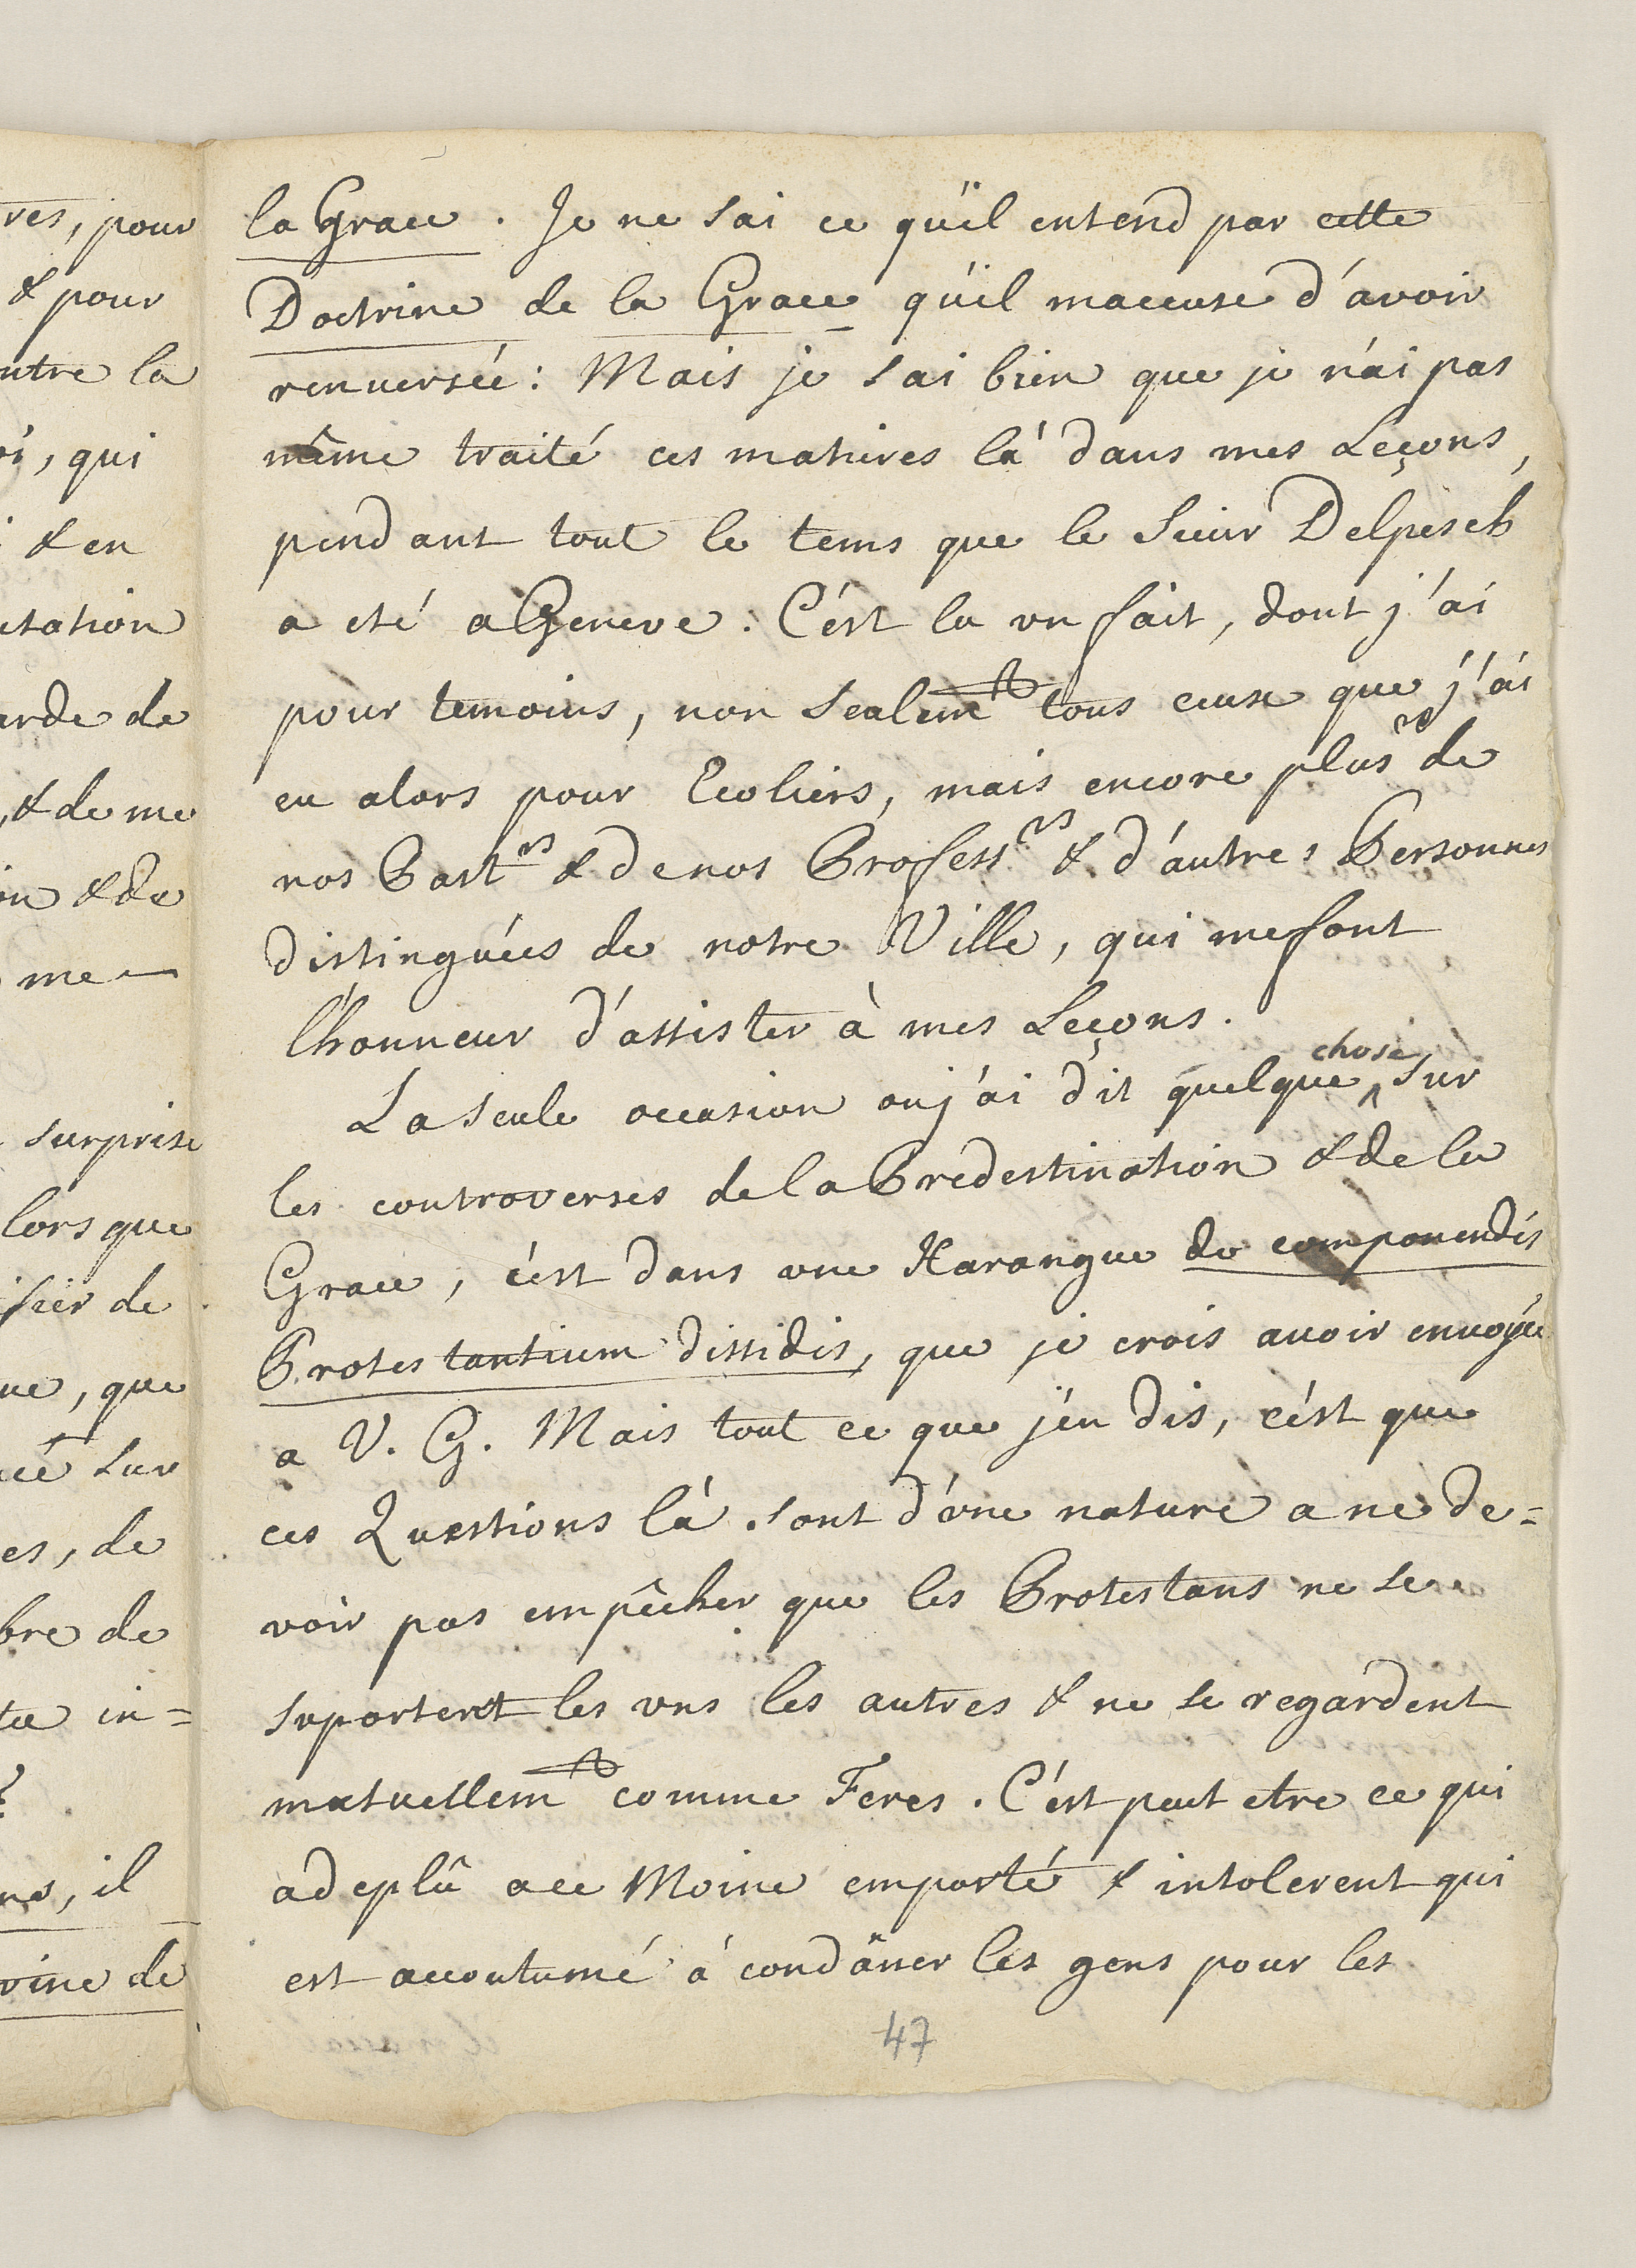 res, pour
& pour
ntre la
oi, qui
& en
utation
arde de
, & de me
on & de
me
surprise
lors que
fier de
ue, que
sur
es, de
bre de
te in=
ns, il
rine de
la Grace. Je ne sai ce qu'il entend par cette
Doctrine de la Grace qu'il maccuse d'avoir
renversée: Mais je sai bien que je n'ai pas
même traité ces matieres là dans mes Leçons,
pendant tout le tems que le Sieur Delpesch
a eté a Geneve. C'est la un fait, dont j'ai
pour temoins, non sealemt tous ceux que j'ai
eu alors pour Ecoliers, mais encore plusrs de
nos Pastrs & de nos Professrs & d'autres Personnes
distinguées de notre Ville, qui me font
l'honneur d'assister à mes Leçons.
La seule occasion ou j'ai dit quelque chose sur
les controverses de la Predestination & de la
Grace, c'est dans une Harangue de componendis
Protestantium dissidis, que je crois avoir envoyée
a V. G. Mais tout ce que j'en dis, c'est que
ces Questions là sont d'une nature a ne de=
voir pas empêcher que les Protestans ne se
suportent les uns les autres & ne se regardent
mutuellemt comme Feres. C'est peut etre ce qui
a deplû a ce Moine emporté & intolerent qui
est accoutumé à condãner les gens pour les
47